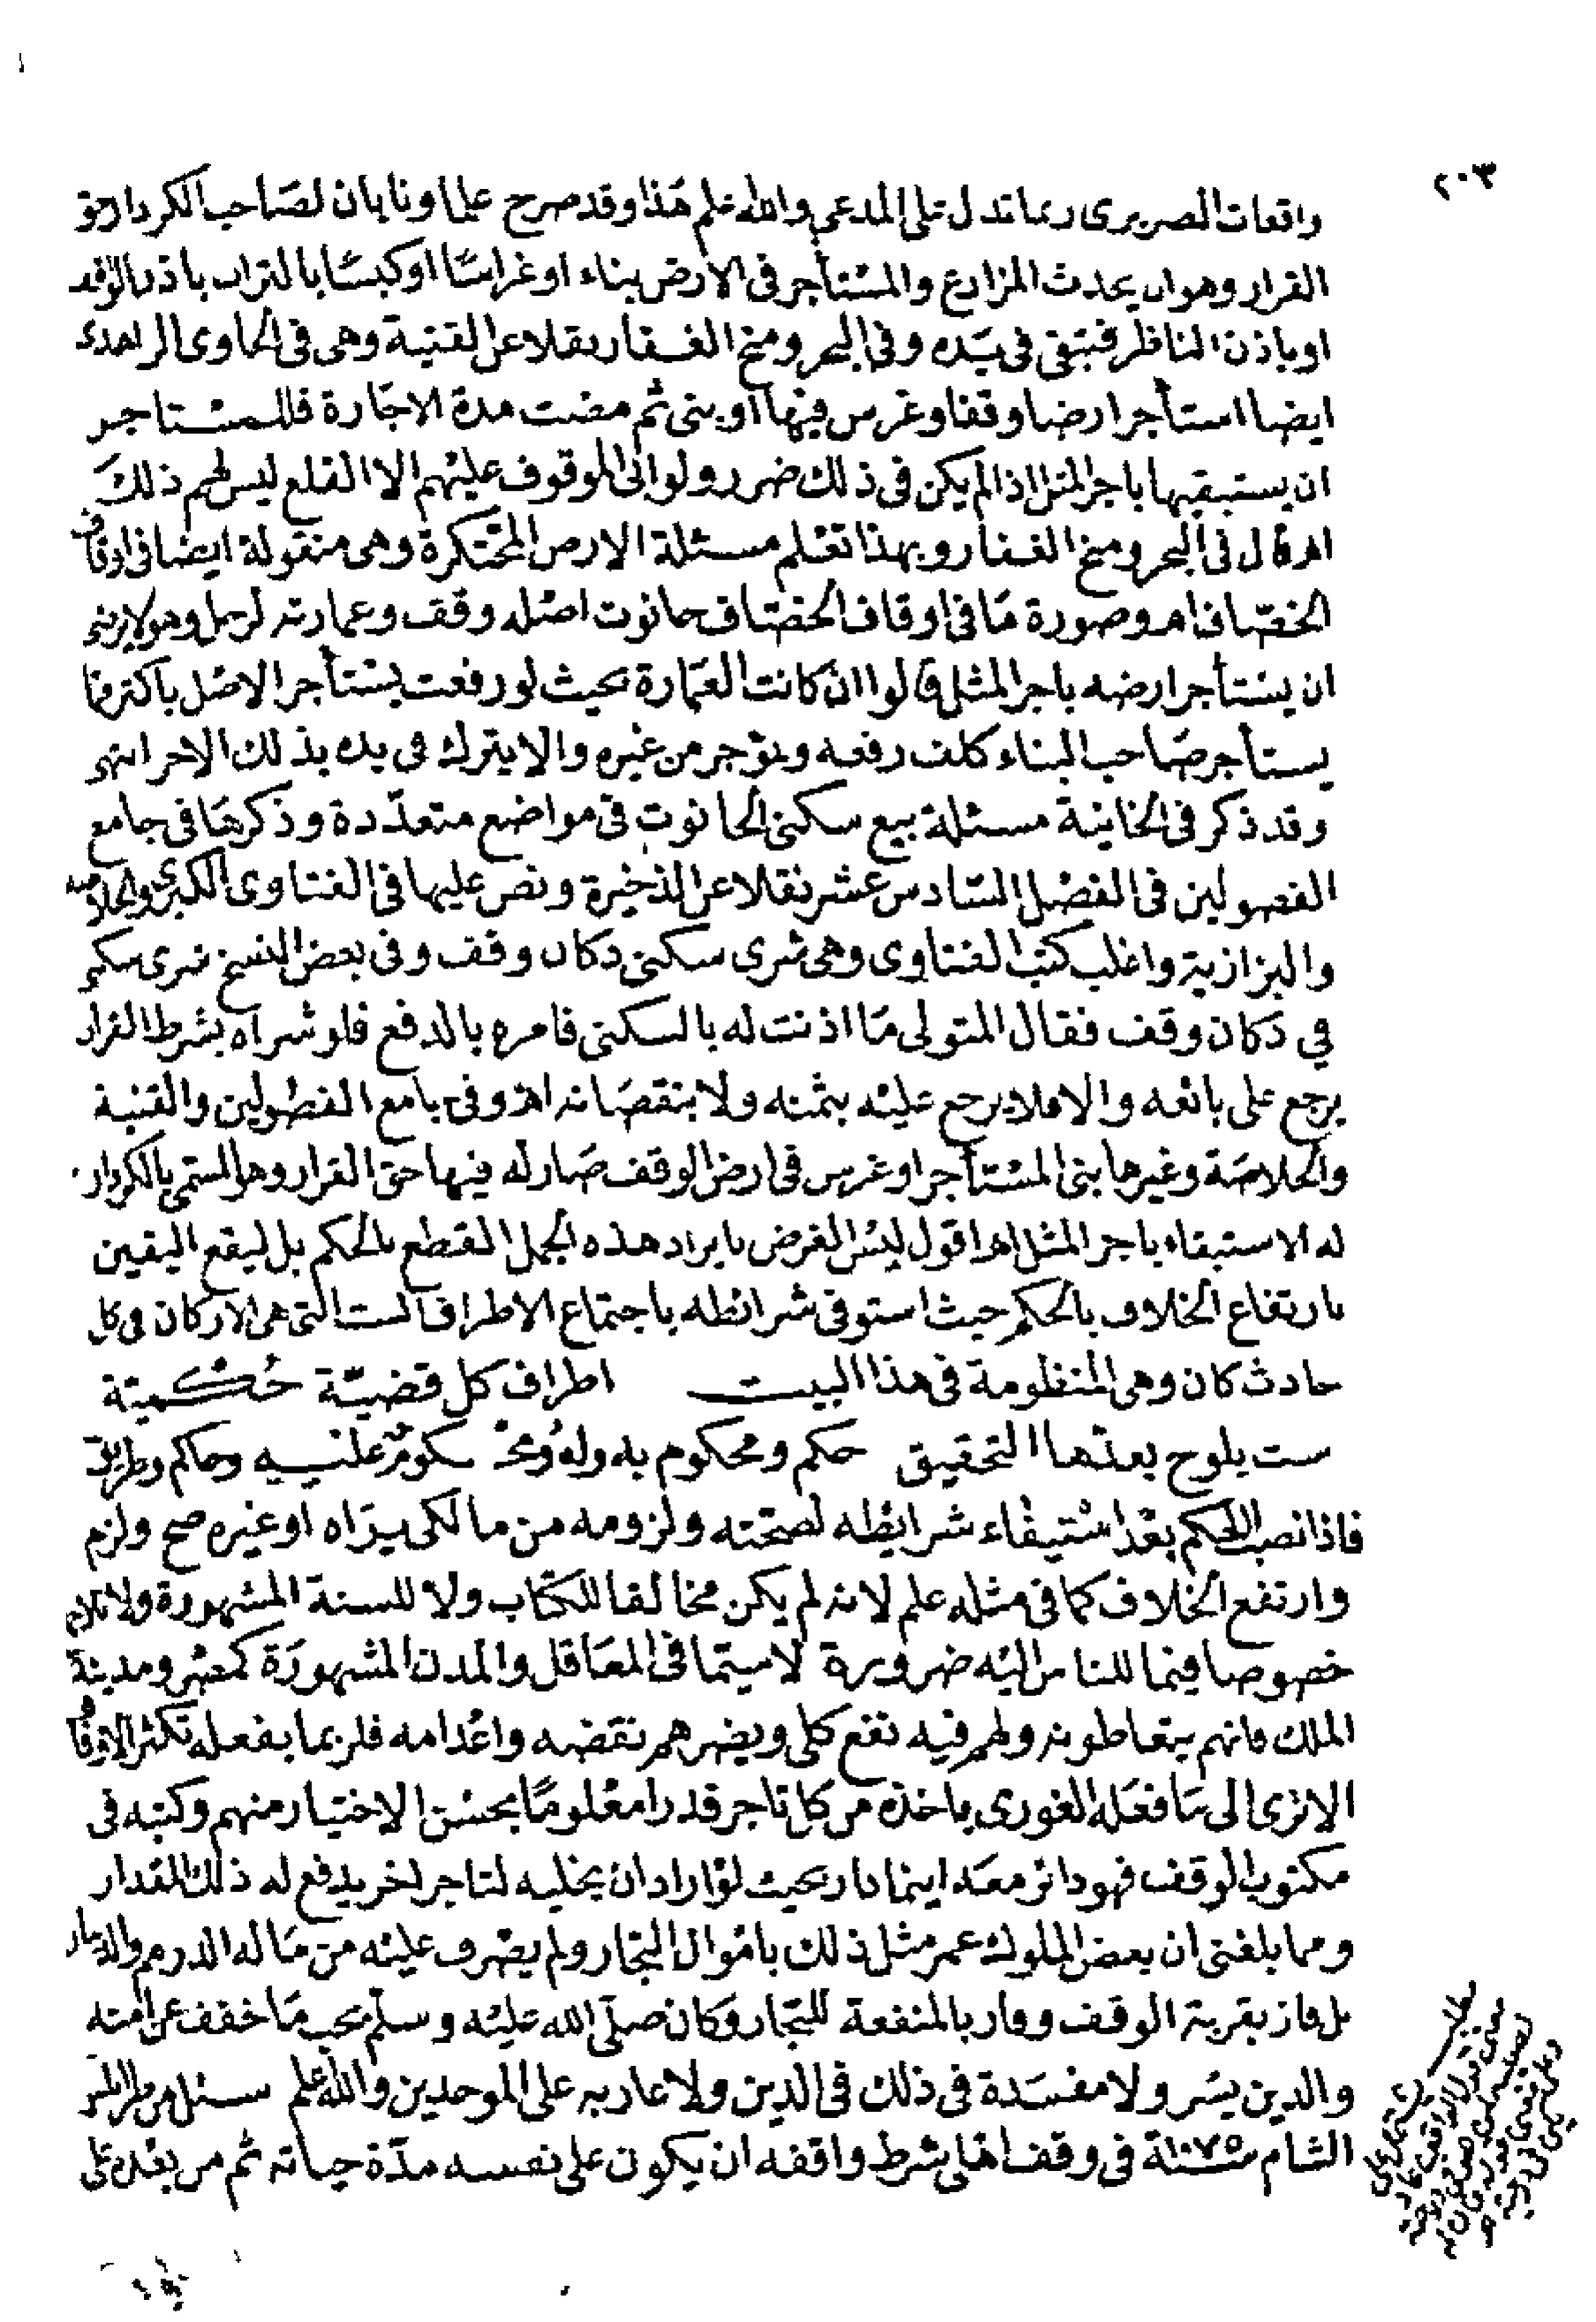 ٢٠٣
واقعات الضريرى ربما تدل على المدعى والله اعلم هذا وقد صرح علماؤنا بان لصاحب الكردار حق
القرار وهو ان يحدث المزارع والمستأجر فى الارض بناء او غراسا او كبسا بالتراب باذن الواقف
او باذن الناظر فتبقى فى يده وفى البحر ومنح الغفار نقلا عن القنية وهى فى الحاوى الزاهدى
ايضا استأجر ارضا وقفا وغرس فيها او بنى ثم مضت مدة الاجارة فللمستاجر
ان يستبقيها باجر المثل اذا لم يكن فى ذلك ضرر ولو ابى الموقوف عليهم الا القلع ليس لهم ذلك
اهـ قال فى البحر ومنح الغفار وبهذا تعلم مسئلة الارض المحتكرة وهى منقولة ايضا فى اوقاف
الخصاف اهـ وصورة ما فى اوقاف الخصاف حانوت اصله وقف وعمارته لرجل وهو لا يرضى
ان يستأجر ارضه باجر المثل قالوا ان كانت العمارة بحيث لو رفعت يستأجر الاصل باكثر مما
يستأجر صاحب البناء كلف رفعه ويؤجر من غيره والا يترك فى يده بذلك الاجر انتهى
وقد ذكر فى الخانية مسئلة بيع سكنى الحانوت فى مواضع متعددة وذكرها فى جامع
الفصولين فى الفصل السادس عشر نقلا عن الذخيرة ونص عليها فى الفتاوى الكبرى والخلاصة
والبزازية واغلب كتب الفتاوى وهى شرى سكنى دكان وقف وفى بعض النسخ شرى سكنى
في دكان وقف فقال المتولى ما اذنت له بالسكنى فامره بالدفع فلو شراه بشرط القرار
يرجع على بائعه والا فلا يرجع عليه بثمنه ولا بنقصانه اهـ وفى جامع الفصولين والقنية
والخلاصة وغيرها بنى المستأجر او غرس فى ارض الوقف صار له فيها حق القرار وهو المسمى بالكردار
له الاستبقاء باجر المثل اهـ اقول ليس الغرض بايراد هذه الجمل القطع بالحكم بل ليقع اليقين
بارتفاع الخلاف بالحكم حيث استوفى شرائطه باجتماع الاطراف الست التى هى الاركان فى كل
حادث كان وهى المنظومة فى هذا البيت اطراف كل قضية حكمية
ست يلوح بعدها التحقيق حكم ومحكوم به وله ومحـكوم عليـه وحاكم وطريق
فاذا نصب الحكم بعد استيفاء شرايطه لصحته ولزومه من مالكى يراه او غيره صح ولزم
وارتفع الخلاف كما فى مثله علم لانه لم يكن مخالفا للكتاب ولا للسنة المشهورة ولا
خصوصا فيما للناس اليه ضرورة لاسيما فى المعاقل والمدن المشهورة كمصر ومدينة
الملك فانهم يتعاطونه ولهم فيه نفع كلى ويضرهم نقضه واعدامه فلربما بفعله تكثر الاوقاف
الا ترى الى ما فعله الغورى باخذه من كل تاجر قدرا معلوما بحسن الاختيار منهم وكتبه فى
مكتوب الوقف فهو دائر معه اينما دار بحيث لو اراد ان يخليه لتاجر اخر يدفع له ذلك القدار
ومما بلغنى ان بعض الملوك عمر مثل ذلك باموال التجار ولم يصرف عليه من ماله الدرهم والدينار
بل فاز بقربة الوقف وفاز بالمنفعة للتجار وكان صلى الله عليه وسلم يحب ما خفف عن امته
والدين يسر ولا مفسدة فى ذلك فى الدين ولا عار به على الموحدين والله اعلم سئل من طرابلس
الشام سنة ١٠٧٥ فى وقف اهلى شرط واقفه ان يكون على نفسه مدة حياته ثم من بعده على